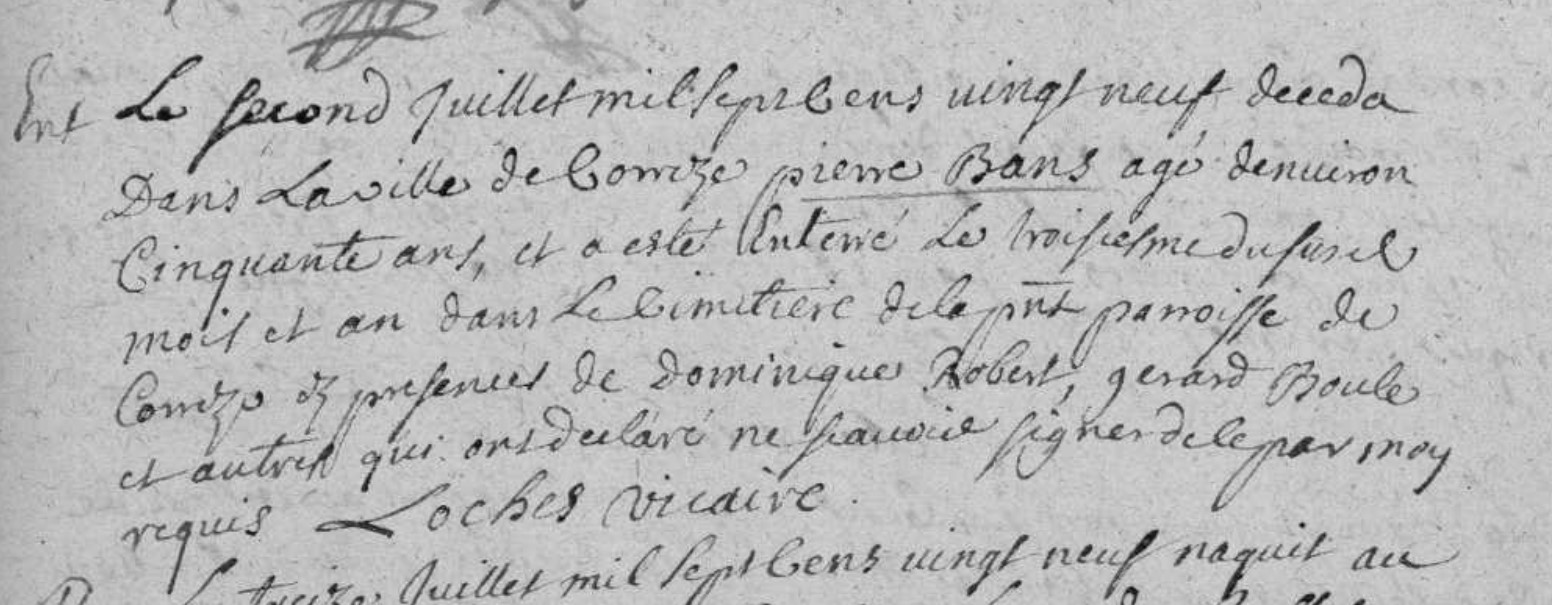 Ent Le second Juillet mil sept Cens vingt neuf deceda
Dans La ville de Correze pierre Bans agé denuiron
Cinquante ans, et a esté Enterré Le troisiesme du susd
mois et an dans Le Cimetiere de la pnt parroisse de
Correze ez presences de dominique Robert, gerard Boule
et autres qui ont declaré ne scauoir signer de le par moy
requis Loches vicaire.
Juillet mil sept Cens vingt neuf naquit au